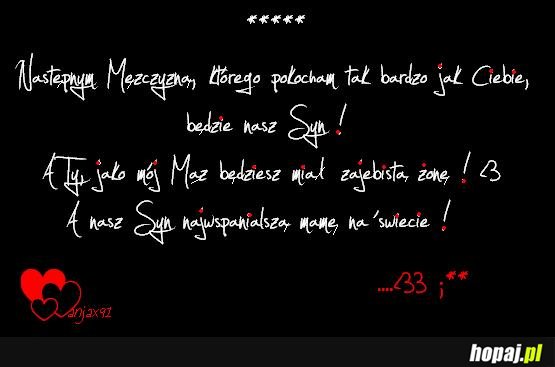 *****
Następnym Mężczyzną, którego pokocham tak bardzo jak Ciebie,
będzie nasz Syn !
A Ty, jako mój Mąż będziesz miał zajebistą żonę ! <3
A nasz Syn najwspanialszą mamę na świecie !
....<33 ;**
anjax91
hopaj.pl